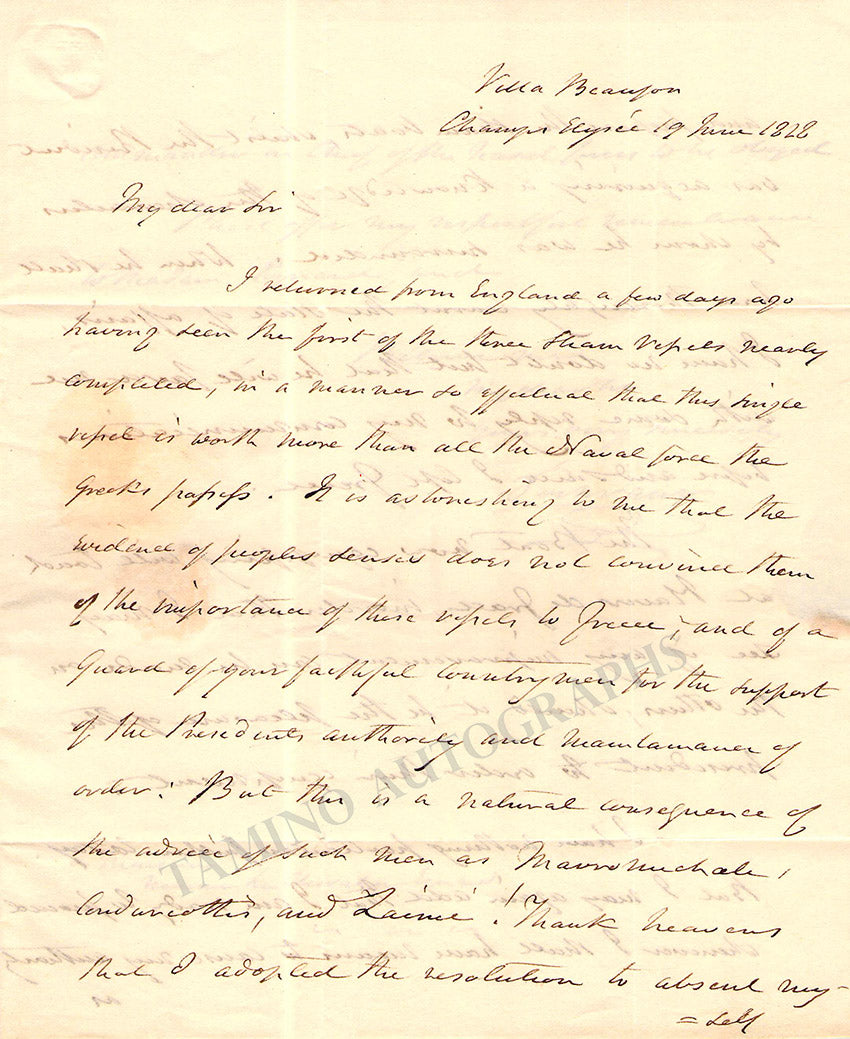 Villa Beaujon
Champs Elysée 19 June 1828
My dear Sir
I returned from England a few days ago
having seen the first of the three Steam vessels nearly
completed, in a manner so effectual that this single
vessel is worth more than all the Naval force the
Greeks possess. It is astonishing to me that the
evidence of peoples senses does not convince them
of the importance of these vessels to Greece, and of a
Guard of your faithful Countrymen for the support
of the Presidents authority and maintainance of
order: But this is a natural consequence of
the advice of such men as Mavromichale,
Conduriottis, and Zaimé! Thank heavens
that I adopted the resolution to absent my-
=self
TAMINO AUTOGRAPHS